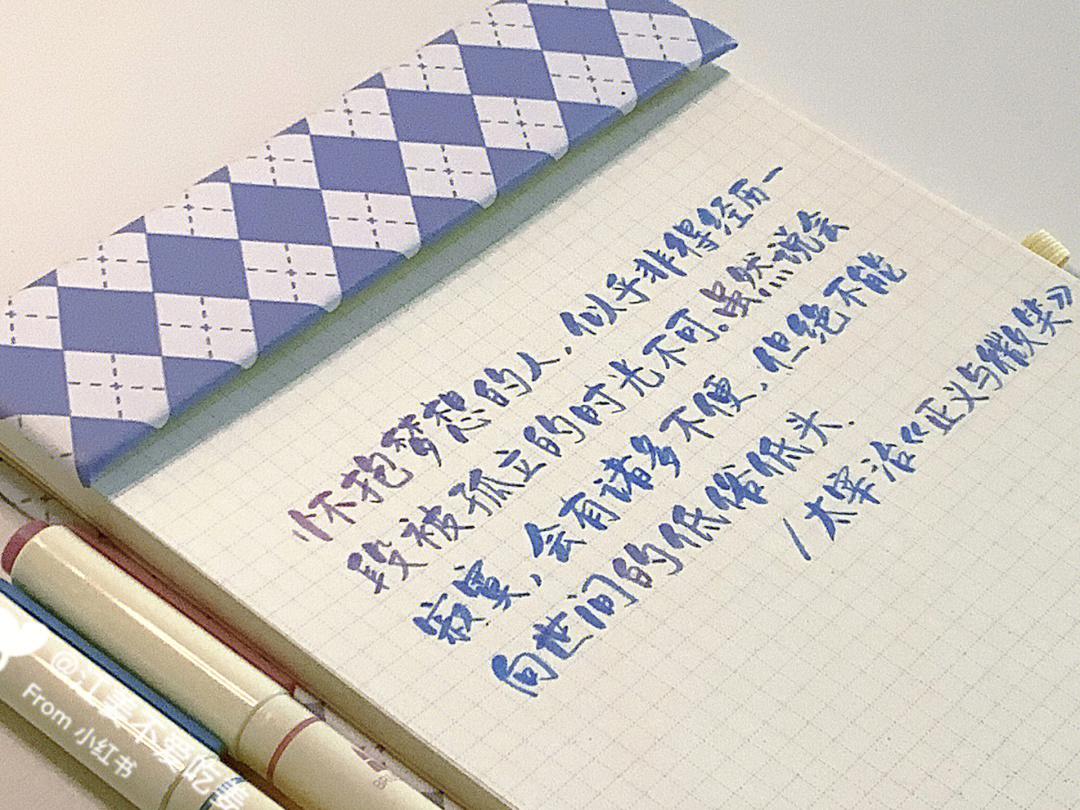 怀抱梦想的人,似乎非得经历一
段被孤立的时光不可.虽然说会
寂寞,会有诸多不便.但绝不能
向世间的低俗低头.
/太宰治《正义与微笑》
@江美不爱吃姜
From 小红书